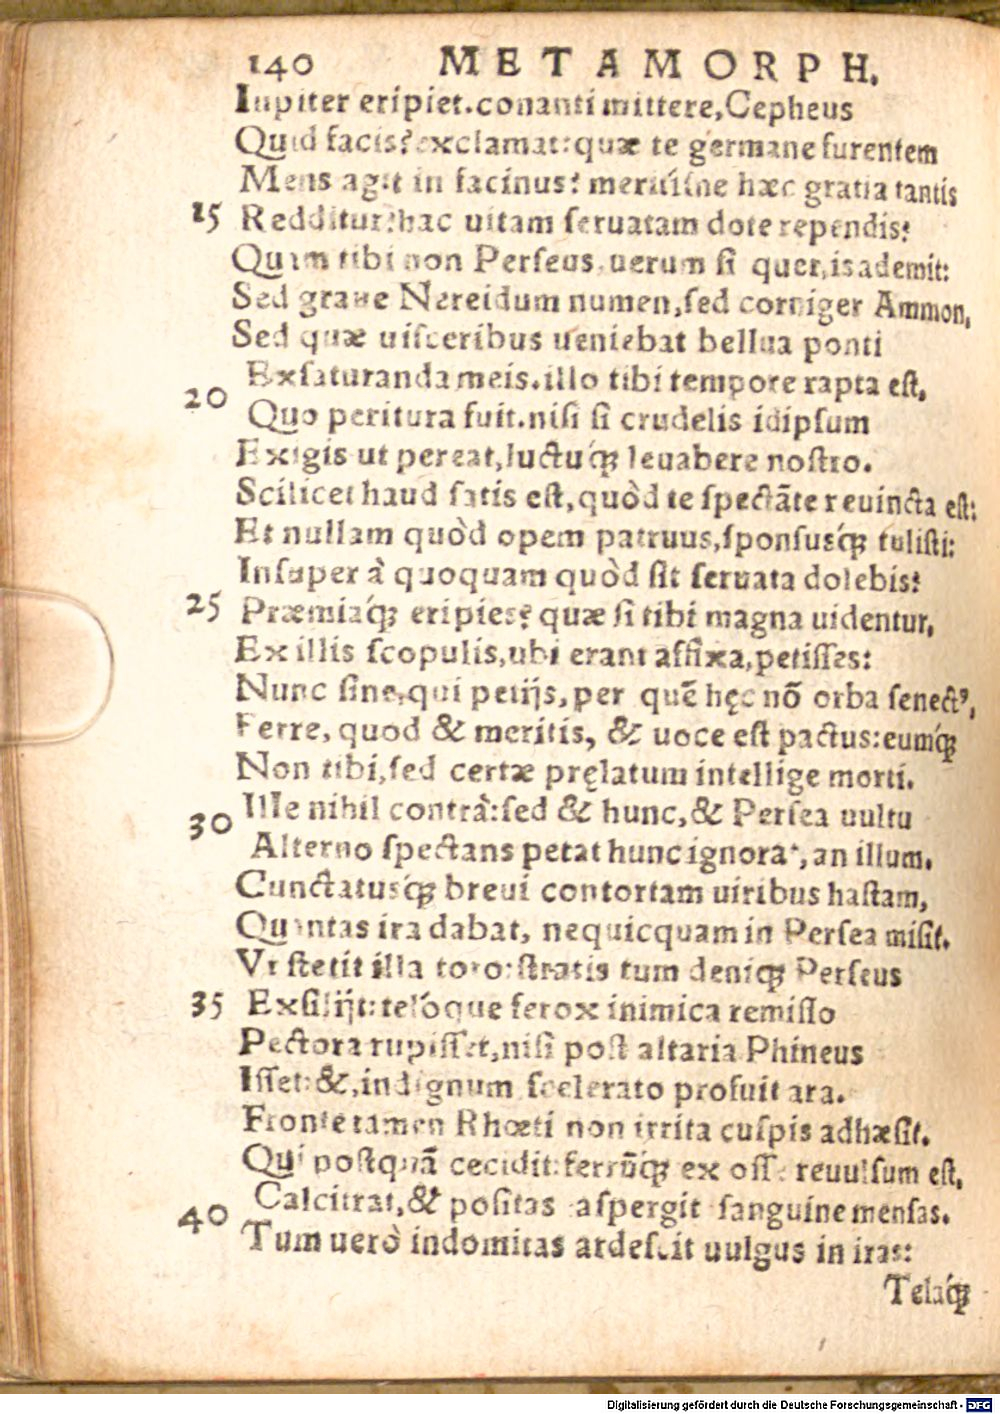 140 METAMORPH.
Iupiter eripiet. conanti mittere, Cepheus
Quid facis? exclamat: quæ te germane furentem
Mens agit in facinus? meritisne hæc gratia tantis
15 Redditur? hac uitam seruatam dote rependis?
Quam tibi non Perseus, uerum si quæris ademit:
Sed graue Nereidum numen, sed corniger Ammon,
Sed quæ uisceribus ueniebat bellua ponti
Exsaturanda meis. illo tibi tempore rapta est,
20 Quo peritura fuit. nisi si crudelis idipsum
Exigis ut pereat, luctuq́ꝫ leuabere nostro.
Scilicet haud satis est, quòd te spectāte reuincta est:
Et nullam quòd opem patruus, sponsusq́ꝫ tulisti:
Insuper à quoquam quòd sit seruata dolebis?
25 Præmiaq́ꝫ eripies? quæ si tibi magna uidentur,
Ex illis scopulis, ubi erant affixa, petisses:
Nunc sine, qui petijs, per quē hęc nō orba senectꝰ,
Ferre, quod & meritis, & uoce est pactus: eumq́ꝫ
Non tibi, sed certæ pręlatum intellige morti.
30 Ille nihil contrà: sed & hunc, & Persea uultu
Alterno spectans petat hunc ignorat, an illum.
Cunctatusq́ꝫ breui contortam uiribus hastam,
Quantas ira dabat, nequicquam in Persea misit.
Vt stetit illa toro: stratis tum deniq́ꝫ Perseus
35 Exsilijt: telóque ferox inimica remisso
Pectora rupisset, nisi post altaria Phineus
Isset: &, indignum scelerato profuit ara.
Fronte tamen Rhœti non irrita cuspis adhæsit.
Qui postquā cecidit: ferrūq́ꝫ ex osse reuulsum est,
40 Calcitrat, & positas aspergit sanguine mensas.
Tum uerò indomitas ardescit uulgus in iras:
Telaq́ꝫ
Digitalisierung gefördert durch die Deutsche Forschungsgemeinschaft - DFG